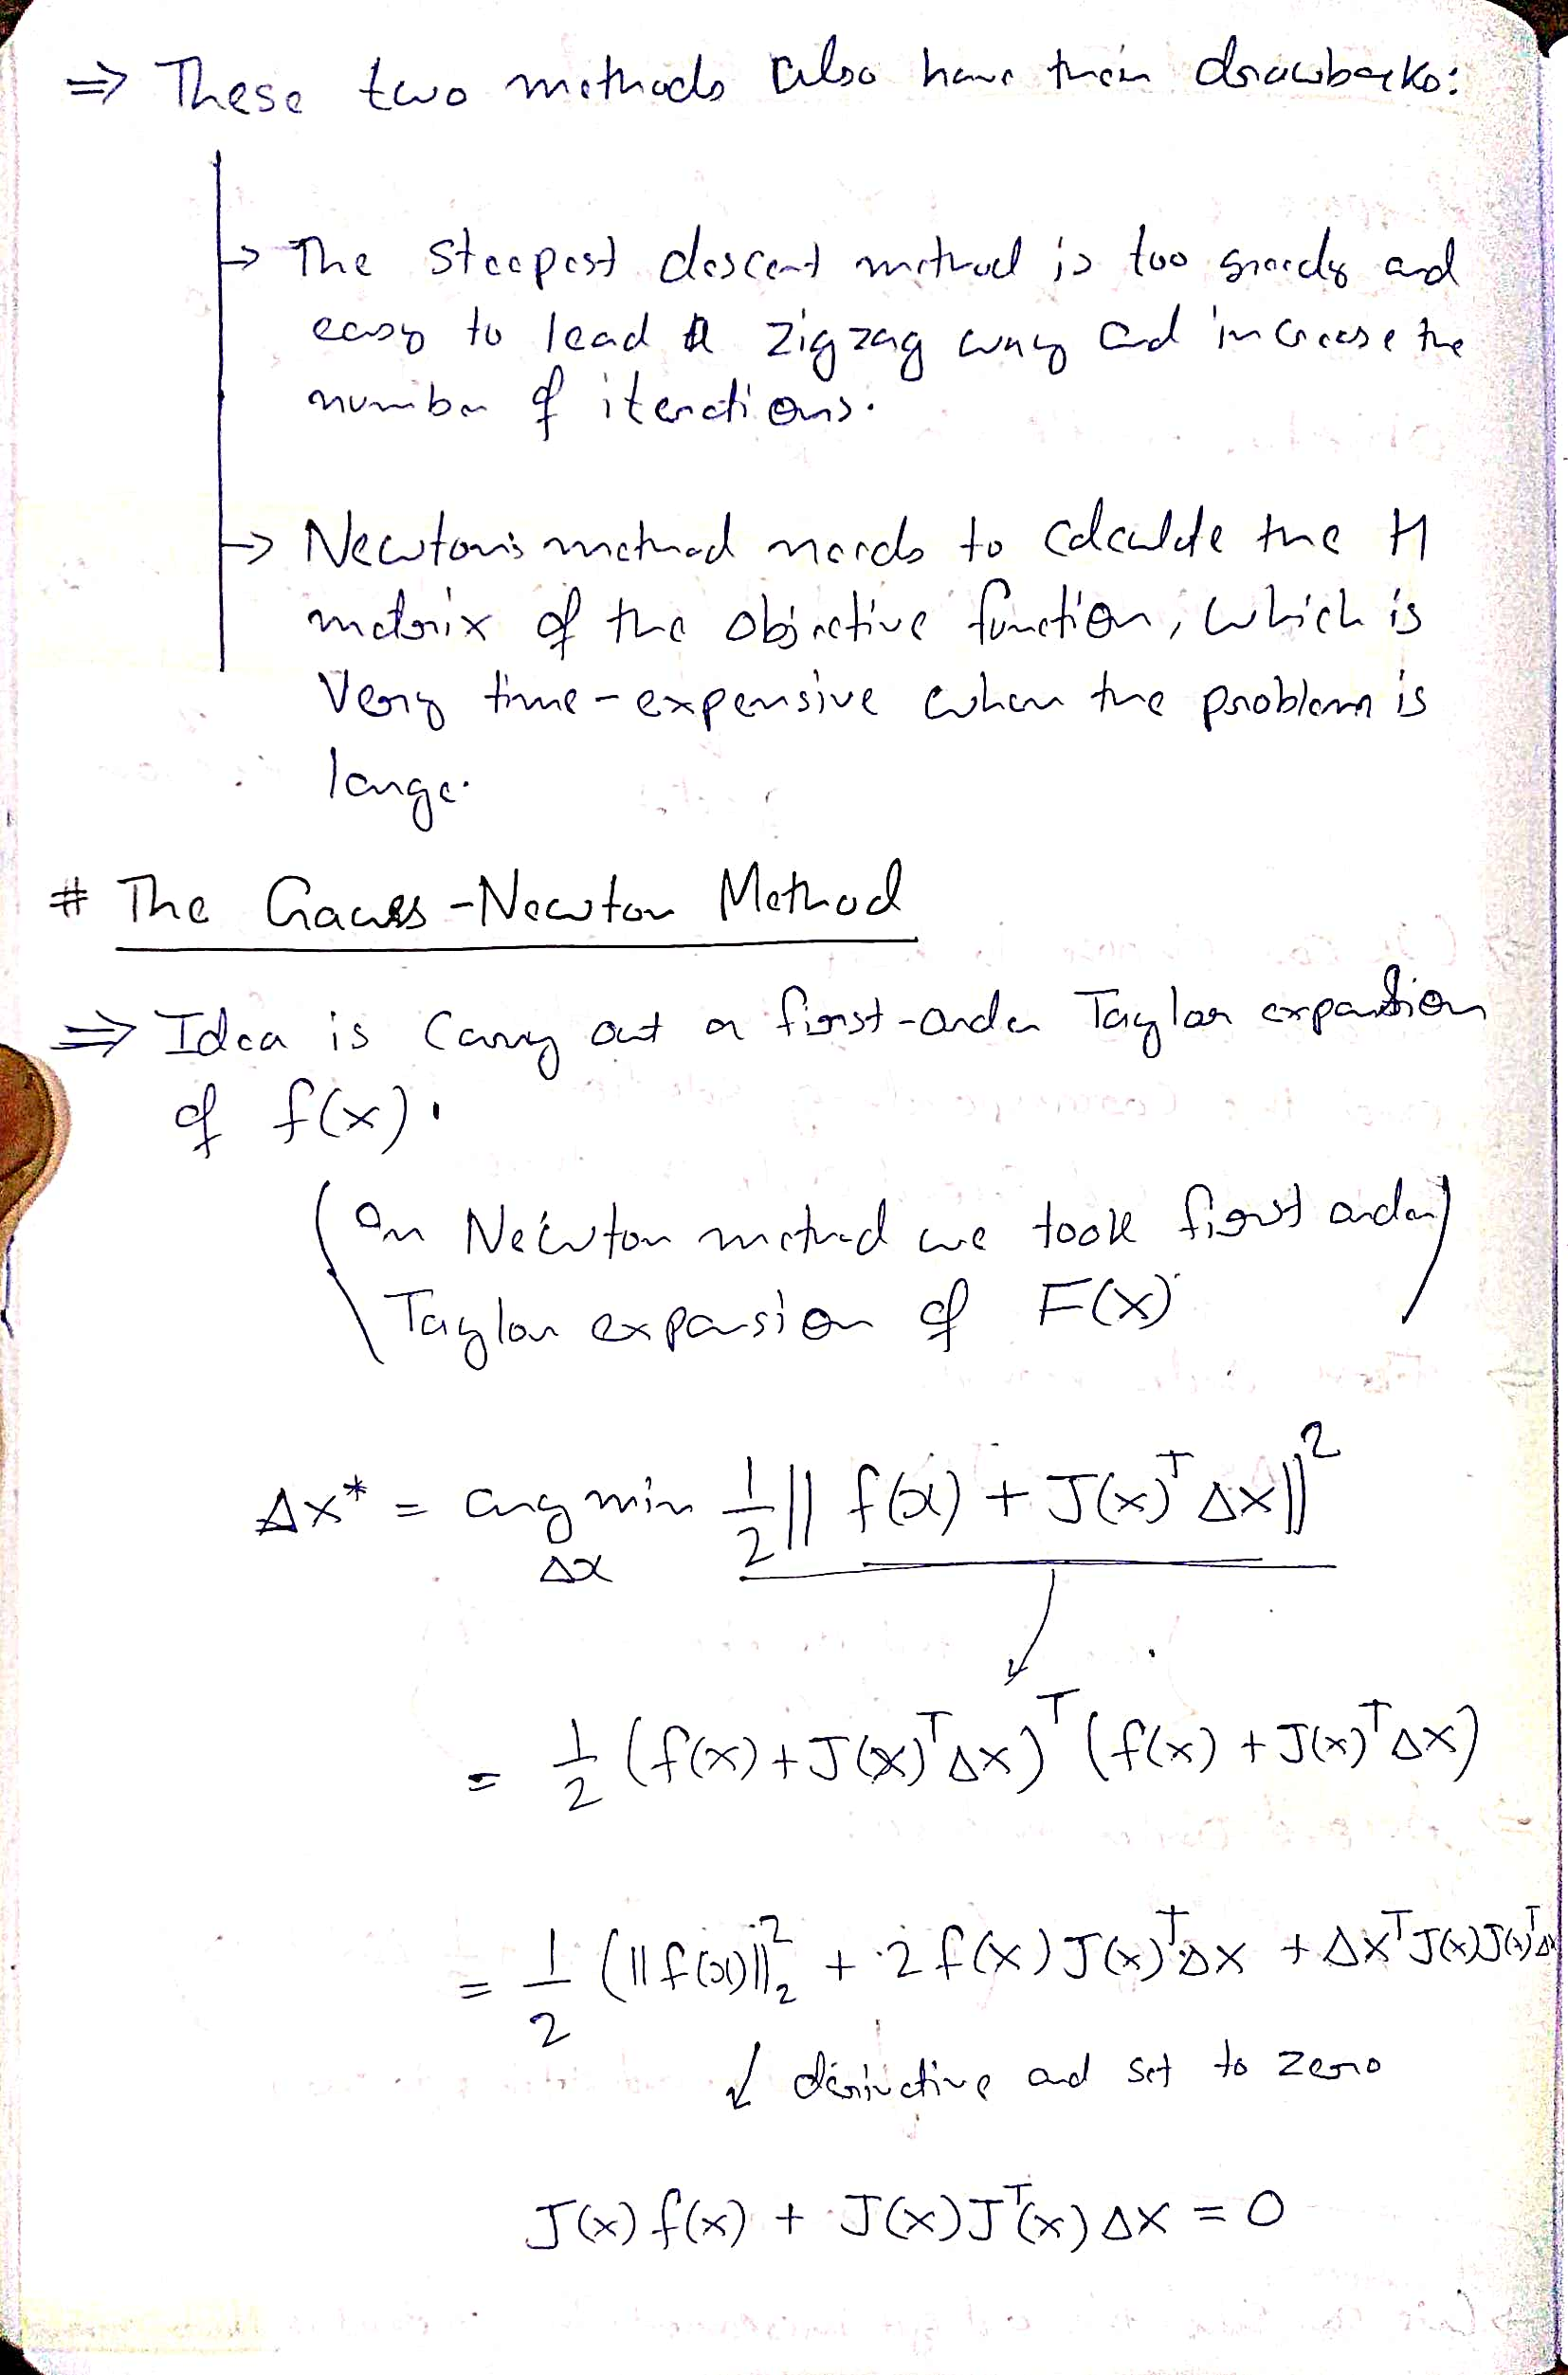 ⇒ These two methods also have their drawbacks:
→ The steepest descent method is too greedy and
easy to lead a zigzag way and increase the
number of iterations.
→ Newton's method needs to calculate the H
matrix of the objective function, which is
very time-expensive when the problem is
large.
# The Gauss-Newton Method
⇒ Idea is carry out a first-order Taylor expansion
of f(x).
(In Newton method we took first order
Taylor expansion of F(x))
Δx* = arg min 1/2 || f(x) + J(x)ᵀ Δx||²
Δx
= 1/2 (f(x) + J(x)ᵀΔx)ᵀ (f(x) + J(x)ᵀΔx)
= 1/2 (||f(x)||₂² + 2 f(x) J(x)ᵀΔx + ΔxᵀJ(x)J(x)ᵀΔx
↓ derivative and set to zero
J(x) f(x) + J(x)Jᵀ(x) Δx = 0